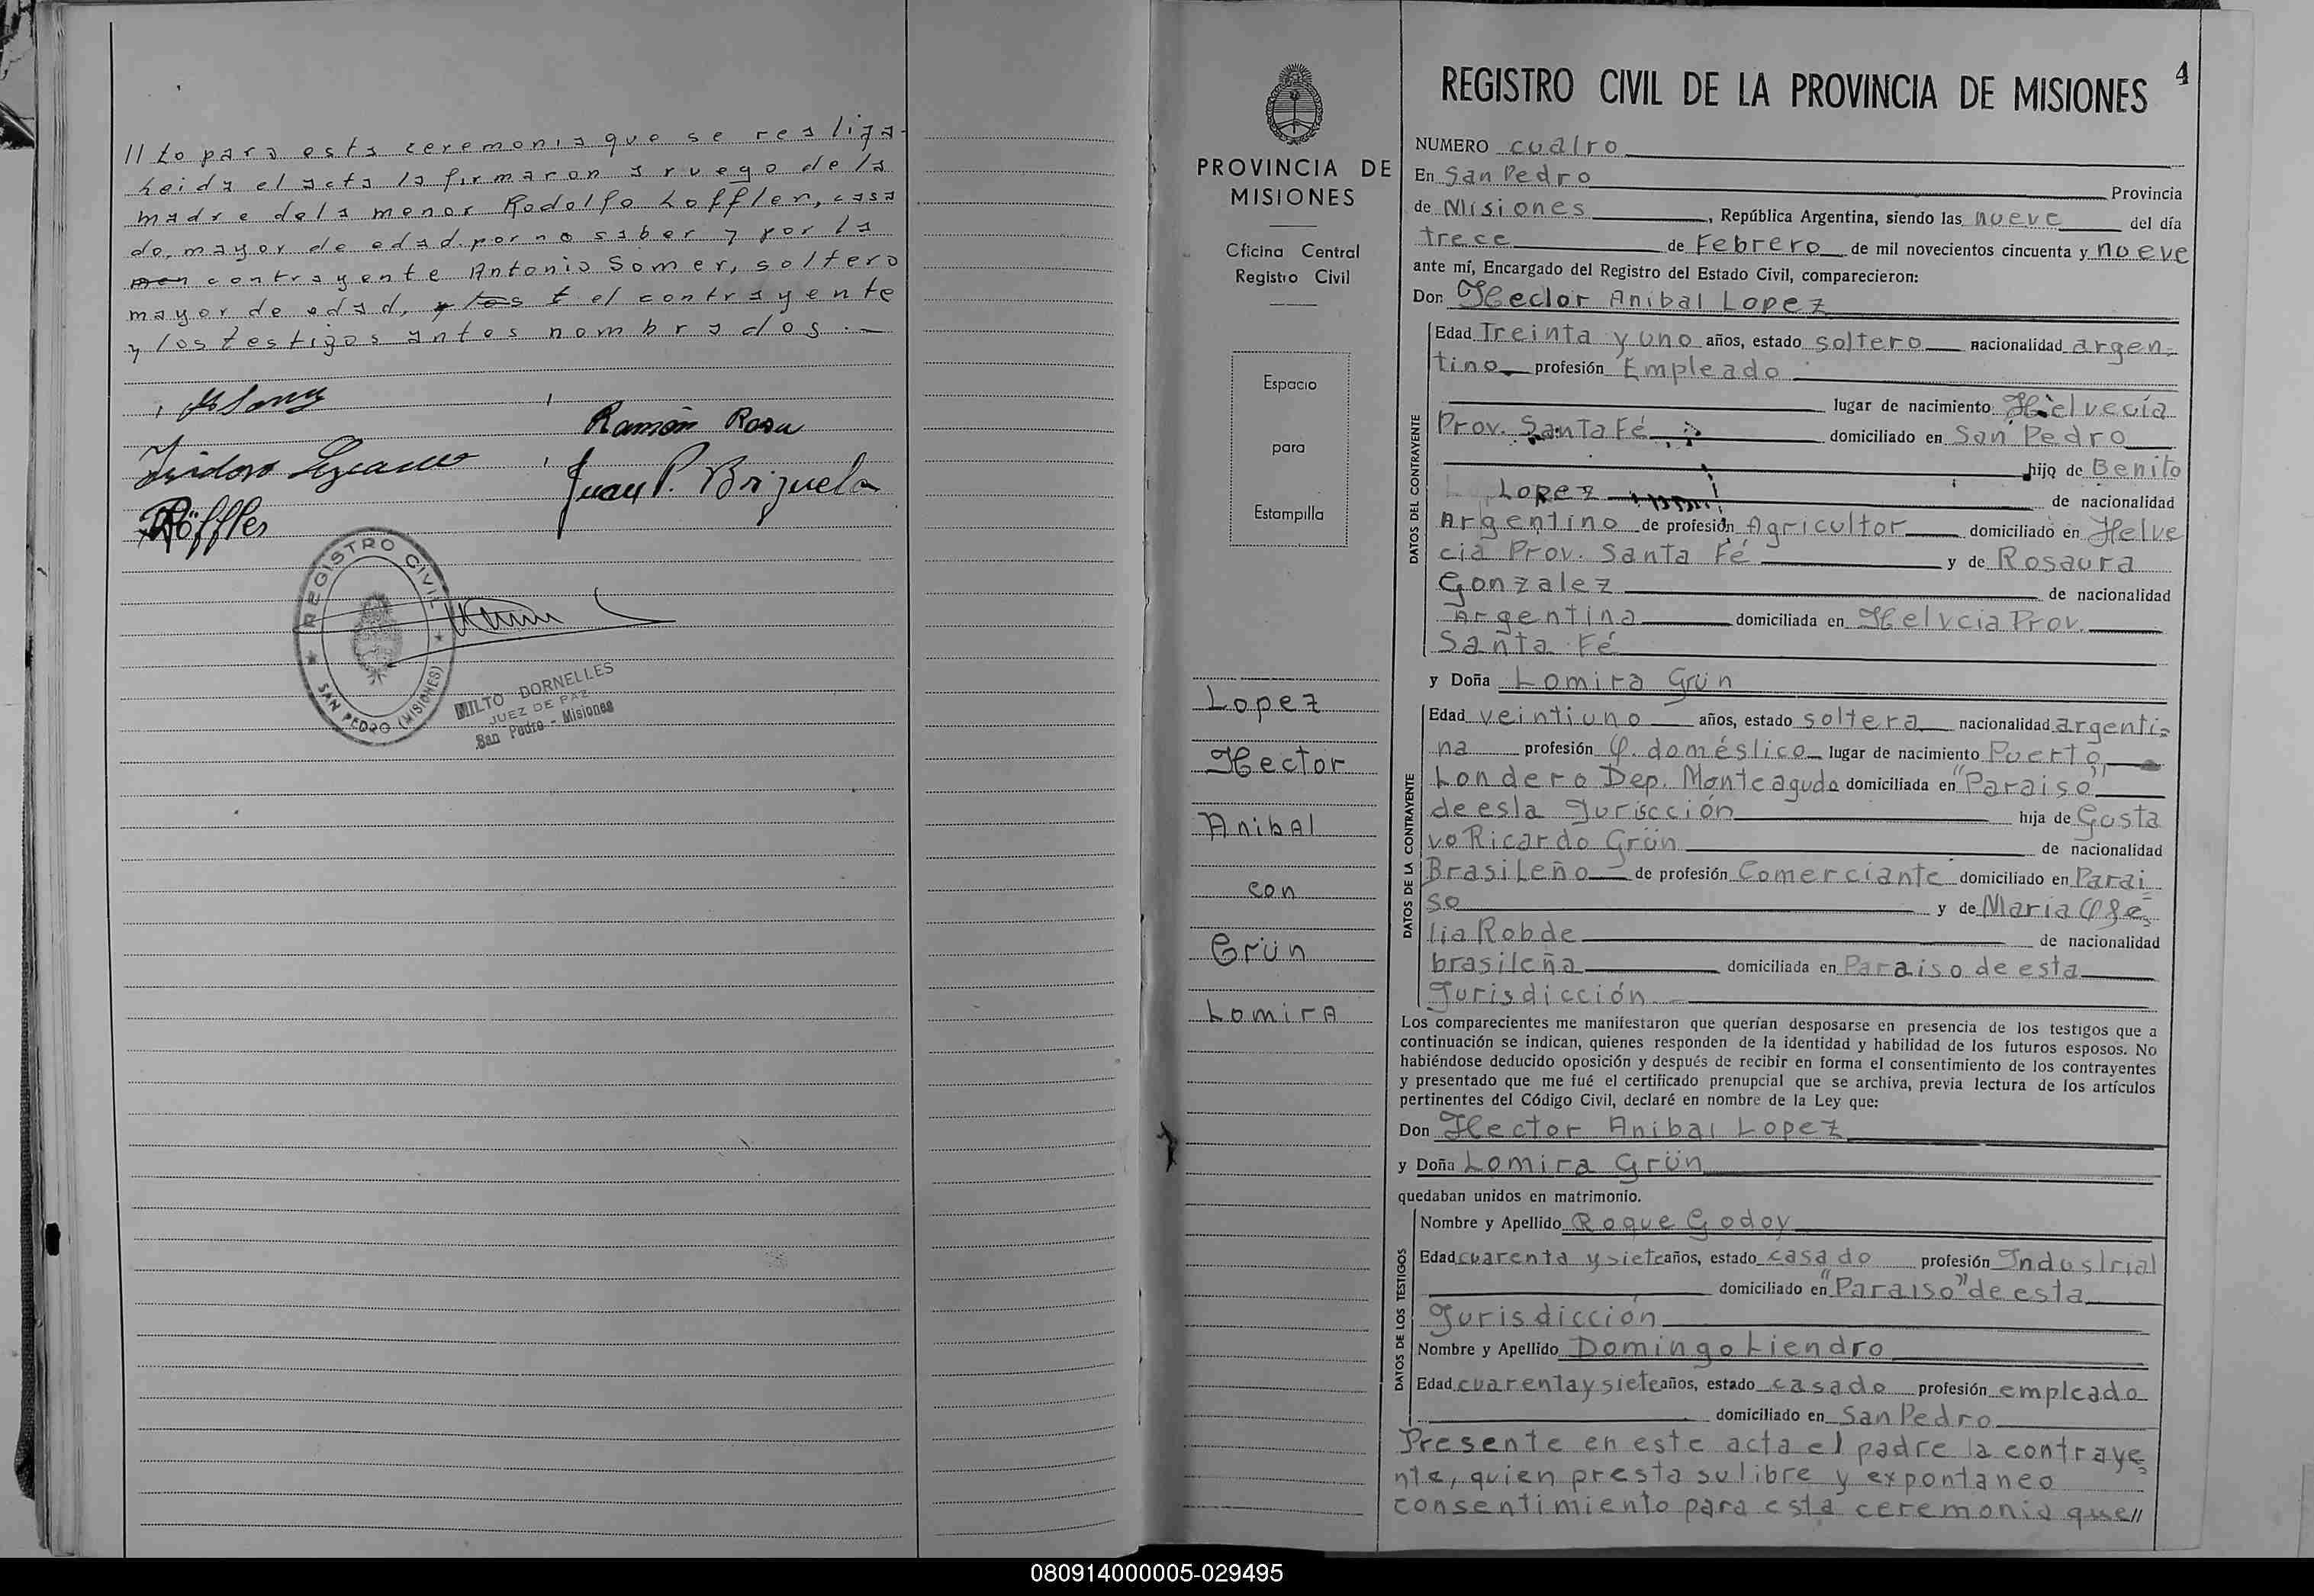 //to para esta ceremonia que se realiza-
Leida el acta la firmaron a ruego de la
madre de la menor Rodolfo Loffler, casa
do, mayor de edad. por no saber y por la
contrayente Antonio Somer, soltero
mayor de edad, el contrayente
y los testigos antes nombrados.—
Ramón Rosa
Juan P. Brizuela
Röffler
REGISTRO CIVIL
SAN PEDRO (MISIONES)
MILTO DORNELLES
JUEZ DE PAZ
San Pedro - Misiones
PROVINCIA DE
MISIONES
Oficina Central
Registro Civil
Espacio
para
Estampilla
Lopez
Hector
Anibal
con
Grün
Lomira
REGISTRO CIVIL DE LA PROVINCIA DE MISIONES 4
NUMERO cuatro
En San Pedro Provincia
de Misiones, República Argentina, siendo las nueve del día
trece de Febrero de mil novecientos cincuenta y nueve
ante mí, Encargado del Registro del Estado Civil, comparecieron:
Don Hector Anibal Lopez
DATOS DEL CONTRAYENTE
Edad Treinta y uno años, estado soltero nacionalidad argen-
tino profesión Empleado
lugar de nacimiento Helvecía
Prov. Santa Fé domiciliado en San Pedro
hijo de Benito
Lopez de nacionalidad
Argentino de profesión Agricultor domiciliado en Helve
cia Prov. Santa Fé y de Rosaura
Gonzalez de nacionalidad
Argentina domiciliada en Helvcia Prov.
Santa Fé
y Doña Lomira Grün
DATOS DE LA CONTRAYENTE
Edad veintiuno años, estado soltera nacionalidad argenti=
na profesión Q. doméstico lugar de nacimiento Puerto
Londero Dep. Monteagudo domiciliada en "Paraiso"
de esta Juriscción hija de Gusta
vo Ricardo Grün de nacionalidad
Brasileño de profesión Comerciante domiciliado en Parai
so y de Maria Ofe=
lia Robde de nacionalidad
brasileña domiciliada en Paraiso de esta
Jurisdicción
Los comparecientes me manifestaron que querían desposarse en presencia de los testigos que a
continuación se indican, quienes responden de la identidad y habilidad de los futuros esposos. No
habiéndose deducido oposición y después de recibir en forma el consentimiento de los contrayentes
y presentado que me fué el certificado prenupcial que se archiva, previa lectura de los artículos
pertinentes del Código Civil, declaré en nombre de la Ley que:
Don Hector Anibal Lopez
y Doña Lomira Grün
quedaban unidos en matrimonio.
DATOS DE LOS TESTIGOS
Nombre y Apellido Roque Godoy
Edad cuarenta y siete años, estado casado profesión Industrial
domiciliado en "Paraiso" de esta
Jurisdicción
Nombre y Apellido Domingo Liendro
Edad cuarenta y siete años, estado casado profesión empleado
domiciliado en San Pedro
Presente en este acta el padre la contraye=
nte, quien presta su libre y expontaneo
consentimiento para esta ceremonia que//
080914000005-029495